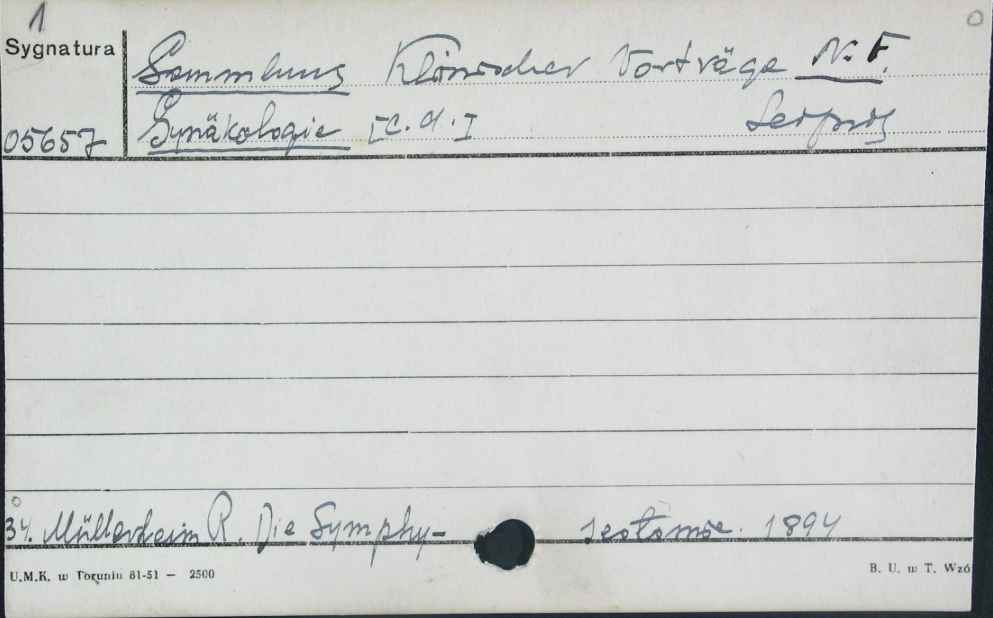 1
Sygnatura
Sammlung Klinischer Vorträge N. F.
05657
Gynäkologie [c.d.] Leipzig
34. Müllerheim R. Die Symphy- seotomie. 1894
U.M.K. w Toruniu 81-51 — 2500
B. U. w T. Wzó